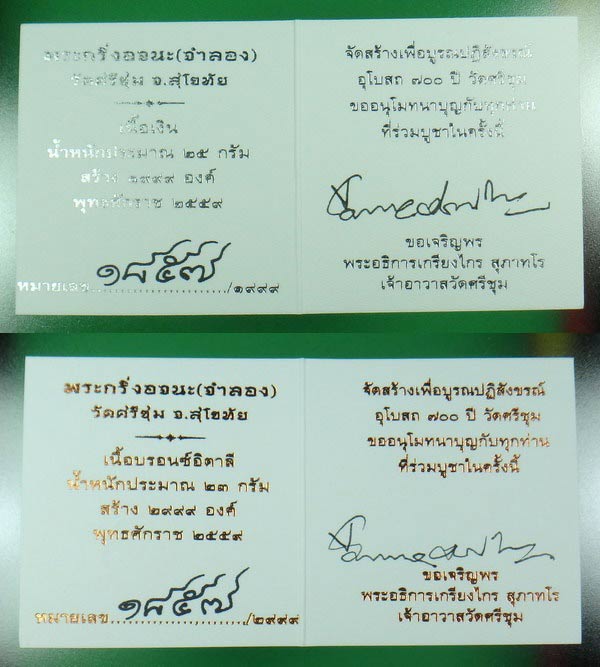 พระกริ่งอจนะ(จำลอง)
วัดศรีชุม จ.สุโขทัย
เนื้อเงิน
น้ำหนักประมาณ ๒๕ กรัม
สร้าง ๑๙๙๙ องค์
พุทธศักราช ๒๕๕๙
หมายเลข ๑๘๕๗ /๑๙๙๙
จัดสร้างเพื่อบูรณปฏิสังขรณ์
อุโบสถ ๗๐๐ ปี วัดศรีชุม
ขออนุโมทนาบุญกับทุกท่าน
ที่ร่วมบูชาในครั้งนี้
ขอเจริญพร
พระอธิการเกรียงไกร สุภาทโร
เจ้าอาวาสวัดศรีชุม
พระกริ่งอจนะ(จำลอง)
วัดศรีชุม จ.สุโขทัย
เนื้อบรอนซ์อิตาลี
น้ำหนักประมาณ ๒๓ กรัม
สร้าง ๒๙๙๙ องค์
พุทธศักราช ๒๕๕๙
หมายเลข ๑๘๕๗ /๒๙๙๙
จัดสร้างเพื่อบูรณปฏิสังขรณ์
อุโบสถ ๗๐๐ ปี วัดศรีชุม
ขออนุโมทนาบุญกับทุกท่าน
ที่ร่วมบูชาในครั้งนี้
ขอเจริญพร
พระอธิการเกรียงไกร สุภาทโร
เจ้าอาวาสวัดศรีชุม